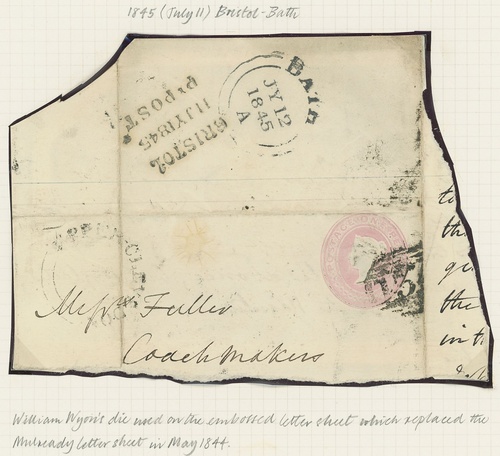 1845 (July 11) Bristol-Bath
BATH
JY 12
1845
A
BRISTOL
11JY1845
Py POST
Messrs Fuller
Coachmakers
to
the
the
in t
William Wyon's die used on the embossed letter sheet which replaced the
Mulready letter sheet in May 1844.